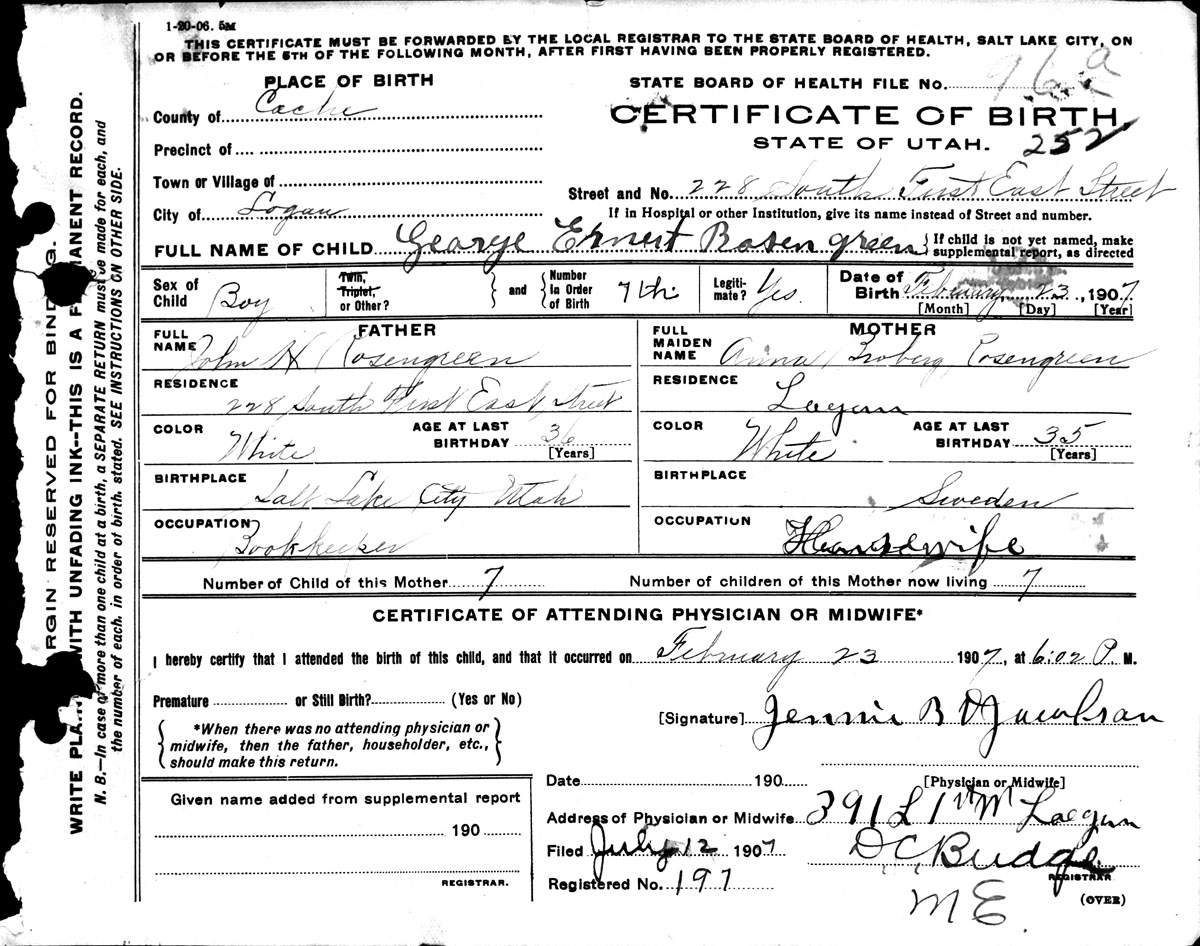 1-20-06. 5M
THIS CERTIFICATE MUST BE FORWARDED BY THE LOCAL REGISTRAR TO THE STATE BOARD OF HEALTH, SALT LAKE CITY, ON
OR BEFORE THE 5TH OF THE FOLLOWING MONTH, AFTER FIRST HAVING BEEN PROPERLY REGISTERED.
PLACE OF BIRTH
STATE BOARD OF HEALTH FILE No.
County of Cache
CERTIFICATE OF BIRTH
252
Precinct of
STATE OF UTAH.
Town or Village of
Street and No. 228 South First East Street
City of Logan
If in Hospital or other Institution, give its name instead of Street and number.
FULL NAME OF CHILD George Ernest Rosengreen { If child is not yet named, make
supplemental report, as directed
Sex of Child Boy
Twin, Triplet, or Other?
and
Number in Order of Birth 7th
Legitimate? Yes
Date of Birth February 23, 1907
[Month] [Day] [Year]
FATHER
FULL NAME John H Rosengreen
MOTHER
FULL MAIDEN NAME Anna Broberg Rosengreen
RESIDENCE 228 South First East Street
RESIDENCE Logan
COLOR White
AGE AT LAST BIRTHDAY 36 [Years]
COLOR White
AGE AT LAST BIRTHDAY 35 [Years]
BIRTHPLACE Salt Lake City Utah
BIRTHPLACE Sweden
OCCUPATION Bookkeeper
OCCUPATION Housewife
Number of Child of this Mother 7
Number of children of this Mother now living 7
CERTIFICATE OF ATTENDING PHYSICIAN OR MIDWIFE*
I hereby certify that I attended the birth of this child, and that it occurred on February 23 1907, at 6:02 P. M.
Premature or Still Birth? (Yes or No)
*When there was no attending physician or
midwife, then the father, householder, etc.,
should make this return.
[Signature] Jennie B Jacobson
[Physician or Midwife]
Date 190
Given name added from supplemental report
190
REGISTRAR.
Address of Physician or Midwife 391 Logan
Filed July 12 1907
D C Budge
REGISTRAR
Registered No. 197
M E
(OVER)
RGIN RESERVED FOR BIND G.
WRITE PLA WITH UNFADING INK--THIS IS A P MANENT RECORD.
N. B.—In case of more than one child at a birth, a SEPARATE RETURN must be made for each, and
the number of each, in order of birth, stated. SEE INSTRUCTIONS ON OTHER SIDE.